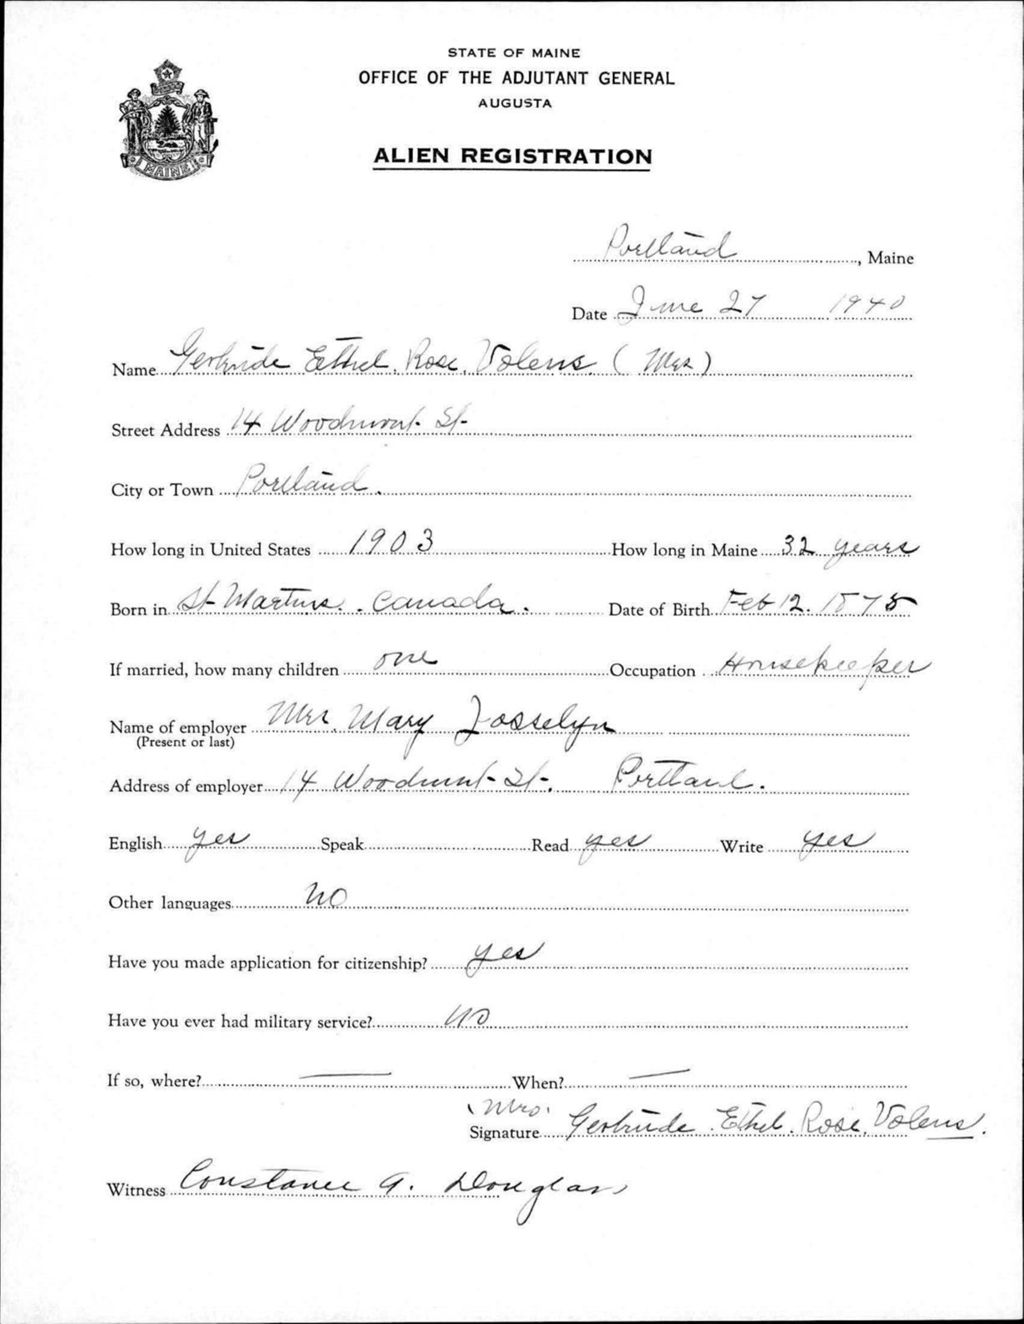 STATE OF MAINE
OFFICE OF THE ADJUTANT GENERAL
AUGUSTA
ALIEN REGISTRATION
MAINE
Portland, Maine
Date June 27 1940
Name Gertrude Ethel Rose Volens (Mrs)
Street Address 14 St-
City or Town Portland.
How long in United States 1903 How long in Maine 32 years
Born in St Martins. Canada. Date of Birth Feb 12. 1878
If married, how many children one Occupation Housekeeper
Name of employer Mrs. Mary Josselyn
(Present or last)
Address of employer 14 St-. Portland.
English yes Speak Read yes Write yes
Other languages NO
Have you made application for citizenship? yes
Have you ever had military service? no
If so, where? — When? —
Mrs.
Signature Gertrude Ethel. Rose. Volens.
Witness Constance A. Douglas